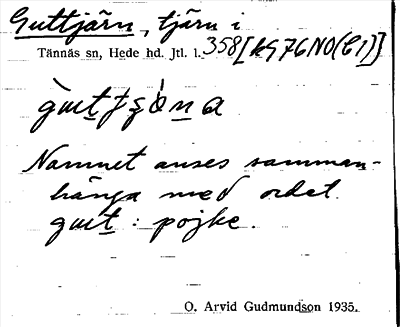 Guttjärn, tjärn i
Tännäs sn, Hede hd. Jtl. l. 358 [kG76NO(C1)]
Namnet anses samman-
hänga med ordet
gut : pojke.
O. Arvid Gudmundson 1935.